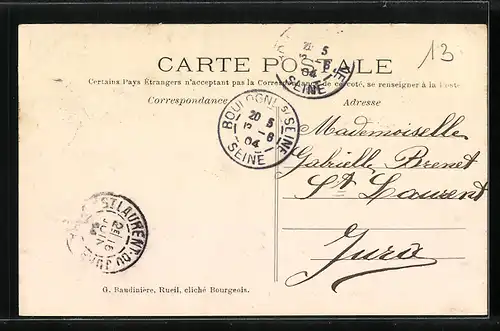 13
CARTE POSTALE
Certains Pays Étrangers n'acceptant pas la Correspondance de ce côté, se renseigner à la Poste
Correspondance
Adresse
BOULOGNE S/ SEINE
20 5
-6
04
SEINE
5
-6
04
SEINE
Mademoiselle
Gabrielle Brenet
St Laurent
Jura
ST LAURENT-DU-
JURA
G. Baudinière, Rueil, cliché Bourgeois.